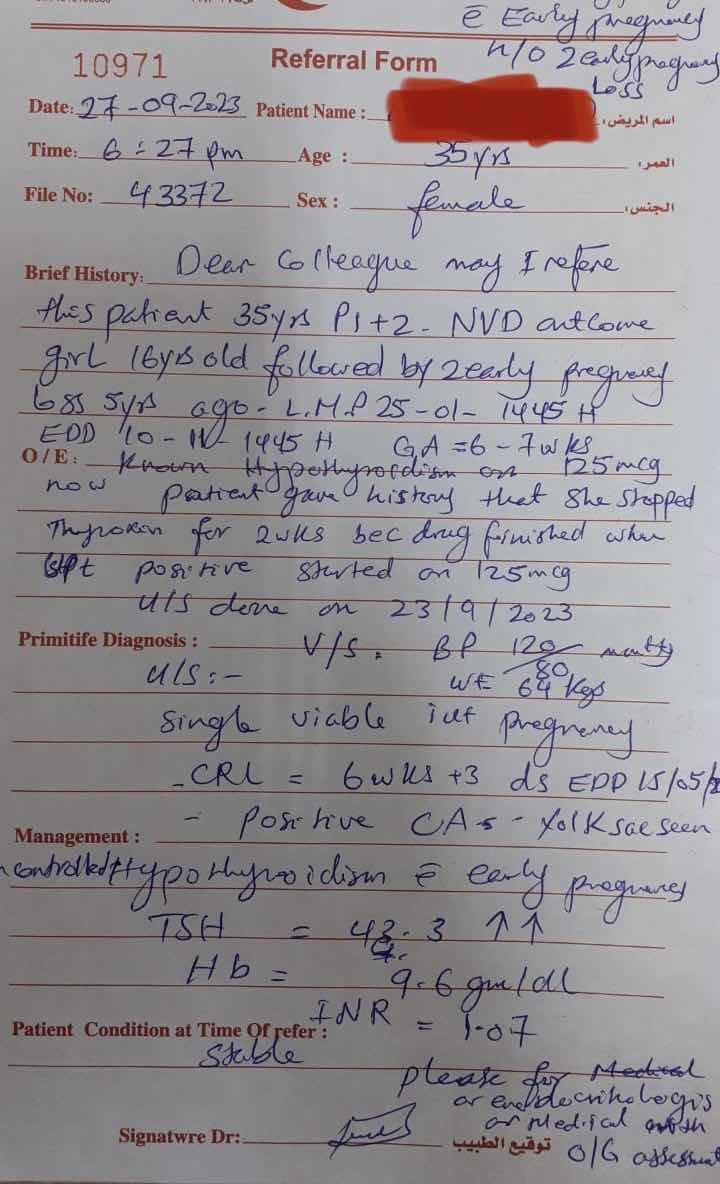 c̄ Early pregnancy
H/O 2 early pregnancy
Loss
10971
Referral Form
Date: 27-09-2023 Patient Name : اسم المريض:
Time: 6:27 pm Age : 35 yrs العمر:
File No: 43372 Sex : female الجنس:
Brief History: Dear Colleague may I refere
this patient 35yrs P1+2 - NVD outcome
girl 16yrs old followed by 2 early pregnancy
loss 5yrs ago - L.M.P 25-01-1445 H
EDD 10-11-1445 H GA = 6-7 wks
O/E: Known Hypothyroidism on 125 mcg
now patient gave history that she stopped
Thyroxin for 2wks bec drug finished when
positive started on 125mcg
U/S done on 23/9/2023
Primitife Diagnosis : V/S: BP 120/80
U/S:- wt 64 Kgs
Single viable iut pregnancy
- CRL = 6 wks + 3 ds EDD 15/05/
- Positive CA - Yolk sac seen
Management :
Hypothyroidism c̄ early pregnancy
TSH = 43.3 ↑↑
Hb = 9.6 gm/dl
INR = 1.07
Patient Condition at Time Of refer :
Stable
please for Medical
or endocrinologis
or Medical with
O/G assessment
Signatwre Dr: توقيع الطبيب